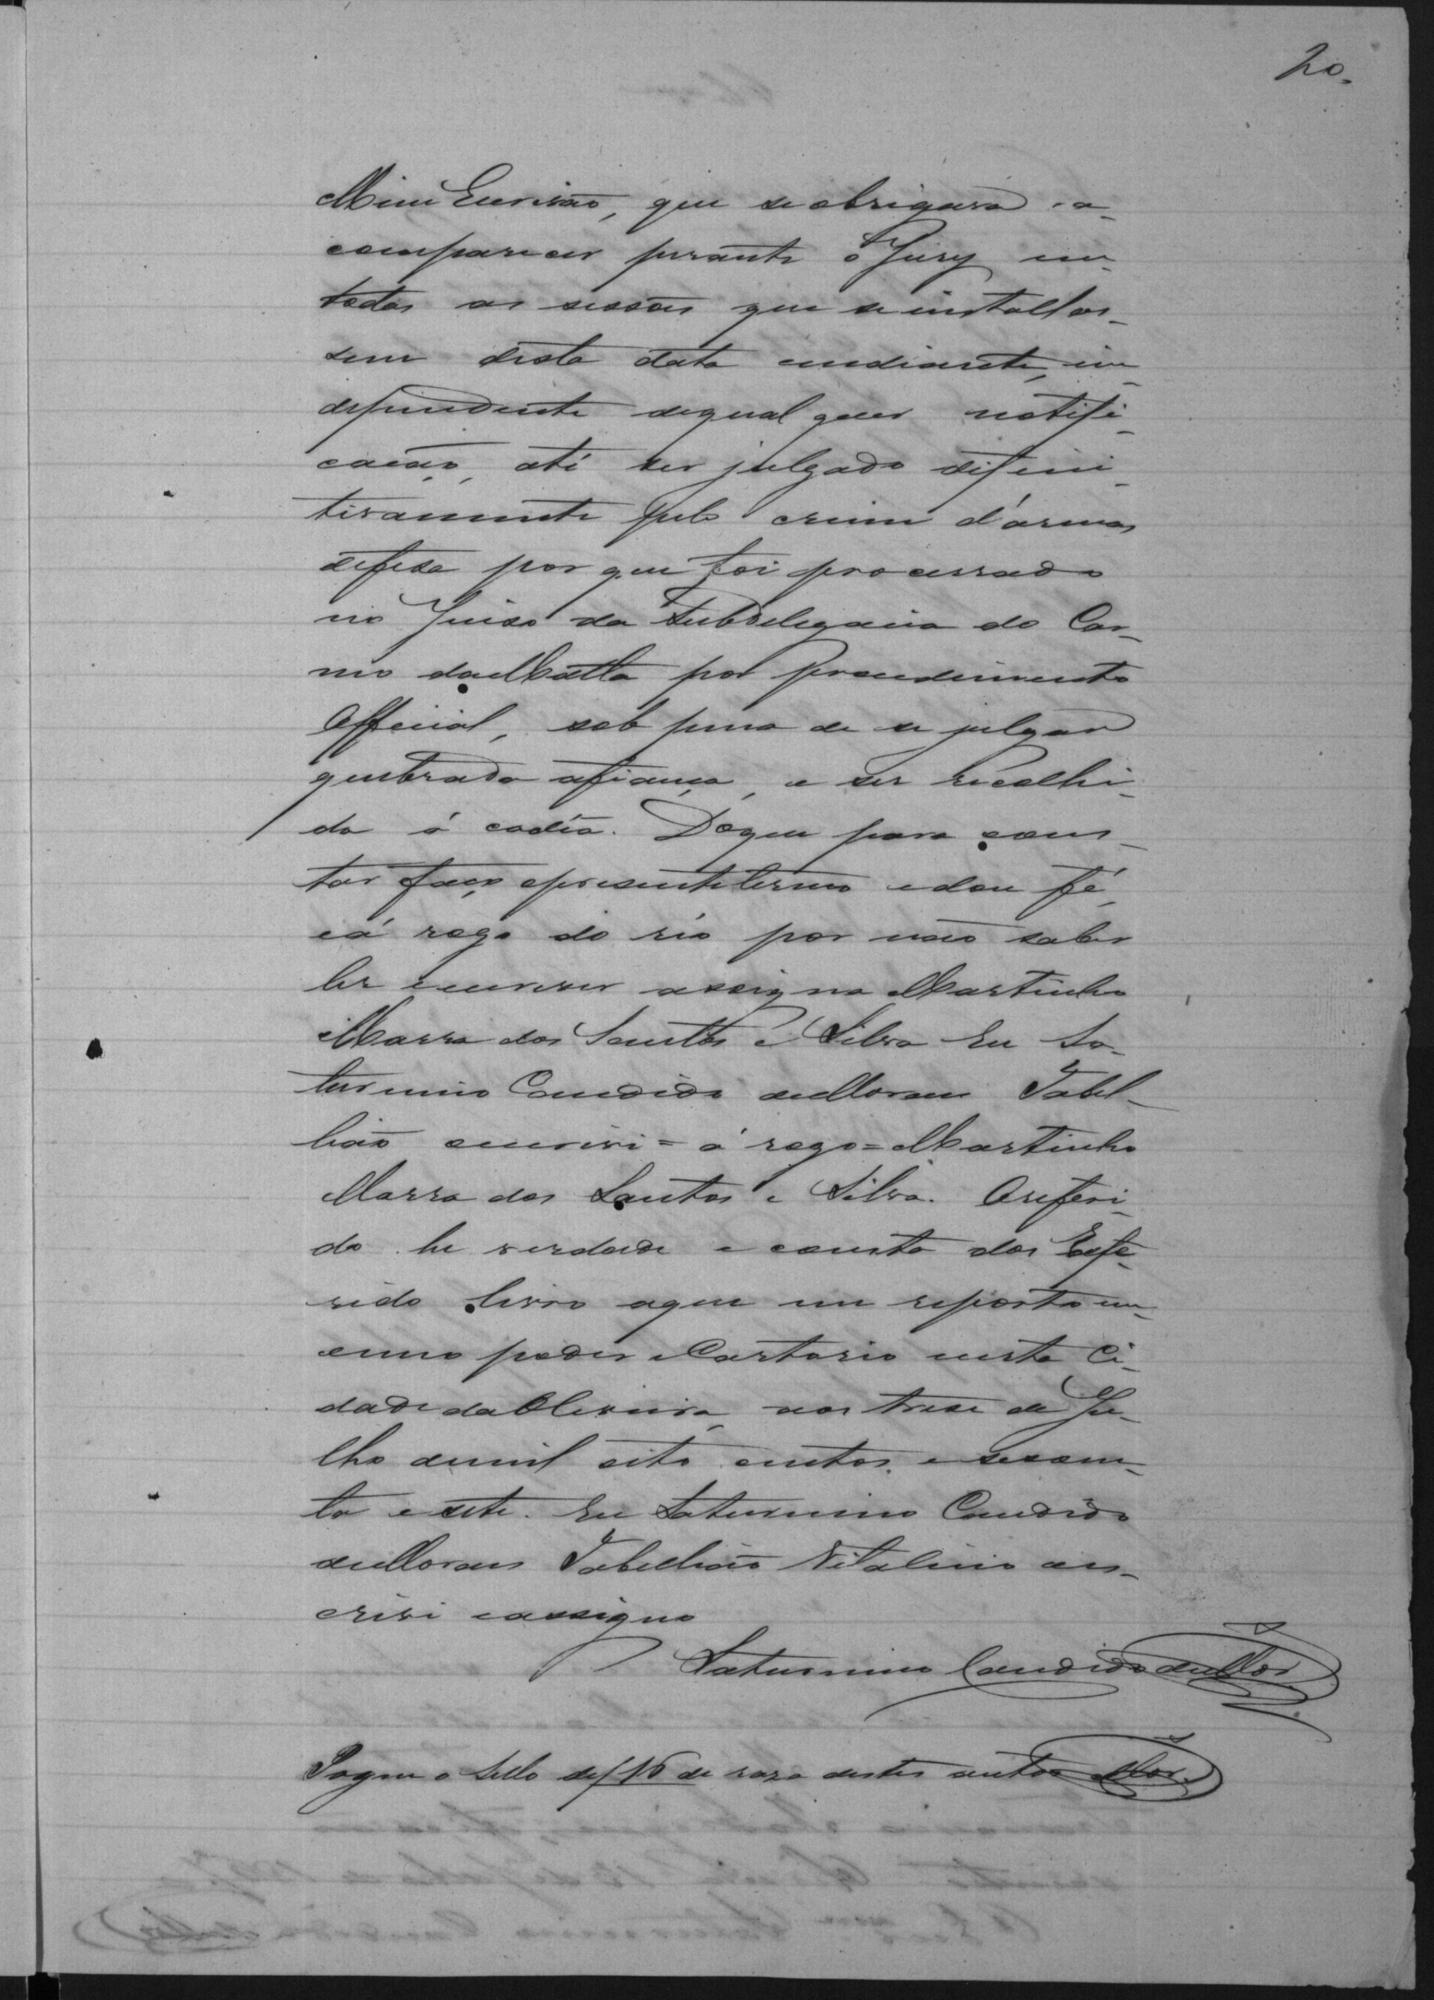 20.
Mim Escrivão, que se obrigava a
comparecer perante o Jury em
todas as sessões que se installas-
sem desta data emdiante, in-
dependente dequal quer notifi-
cação, até ser julgado difini-
tivamente pelo crime d'armas
defesa por que foi processado
no Juiso da Subdelegacia do Car-
mo da Matta por procedimento
Official, sob pena de se julgar
quebrada afiança, e ser recolhi-
do á cadêa. Doque para cons-
tar faço opresente termo e dou fé,
e á rogo do réo por não saber
ler e escrever assigna Martinho
Marra dos Santos e Silva Eu Sa-
turnino Candido de Moraes Tabel-
lião escrivi = á rogo = Martinho
Marra dos Santos e Silva. Oreferi-
do he verdade e consta dos refe-
rido livro aque me reporto em
emeo poder e Cartorio nesta Ci-
dade da Oliveira, aos trese de Ju-
lho demil oito centos e sessen-
ta e sete. Eu Saturnino Candido
de Moraes Tabellião Vitalicio es-
crivi e assigno
Saturnino Candido de Mor.
Pagou o Sello de 16 de rasa destes autos Mor.